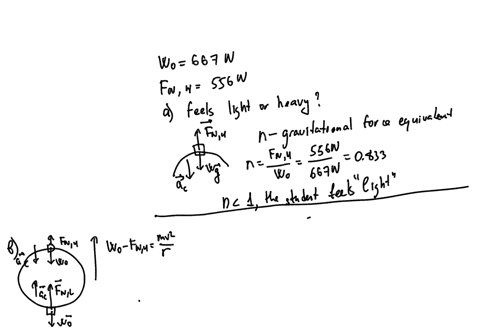 W₀ = 667 N
F_N,H = 556 N
a) feels light or heavy?
F_N,H
n - gravitational force equivalent
n = F_N,H / W₀ = 556N / 667N = 0.833
a_c W_g
n < 1, the student feels "light"
b) F_N,H
a_c W₀
W₀ - F_N,H = mv² / r
a_c F_N,L
W₀